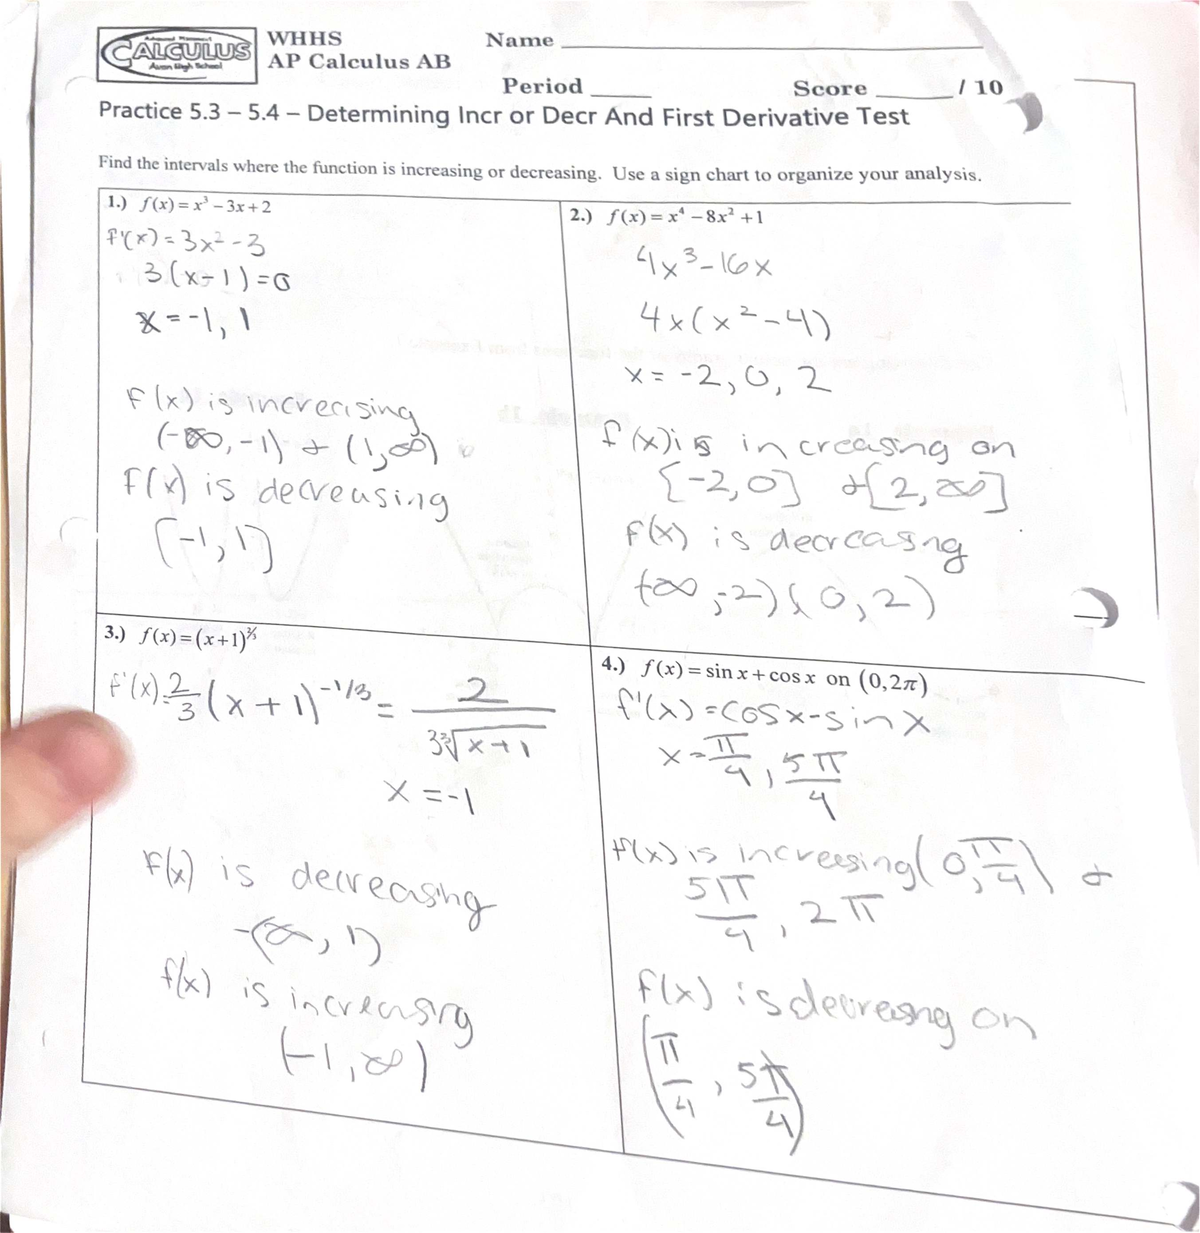 CALCULUS
Avon High School
WHHS
AP Calculus AB
Name
Period
Score / 10
Practice 5.3 – 5.4 – Determining Incr or Decr And First Derivative Test
Find the intervals where the function is increasing or decreasing. Use a sign chart to organize your analysis.
1.) f(x) = x³ – 3x + 2
f'(x) = 3x² - 3
3(x-1) = 0
x = -1, 1
f(x) is increasing
(-∞, -1) + (1, ∞)
f(x) is decreasing
[-1, 1]
2.) f(x) = x⁴ – 8x² + 1
4x³ - 16x
4x(x² - 4)
x = -2, 0, 2
f(x) is increasing on
[-2, 0] + [2, ∞]
f(x) is decreasng
(-∞, -2) (0, 2)
3.) f(x) = (x+1)^⅔
f'(x) = 2/3 (x+1)^-1/3 = 2 / 3∛x+1
x = -1
f(x) is decreasing
-(∞, 1)
f(x) is increasing
(-1, ∞)
4.) f(x) = sin x + cos x on (0, 2π)
f'(x) = cosx - sinx
x = π/4, 5π/4
f(x) is increesing (0, π/4) +
5π/4, 2π
f(x) is decreasng on
(π/4, 5π/4)